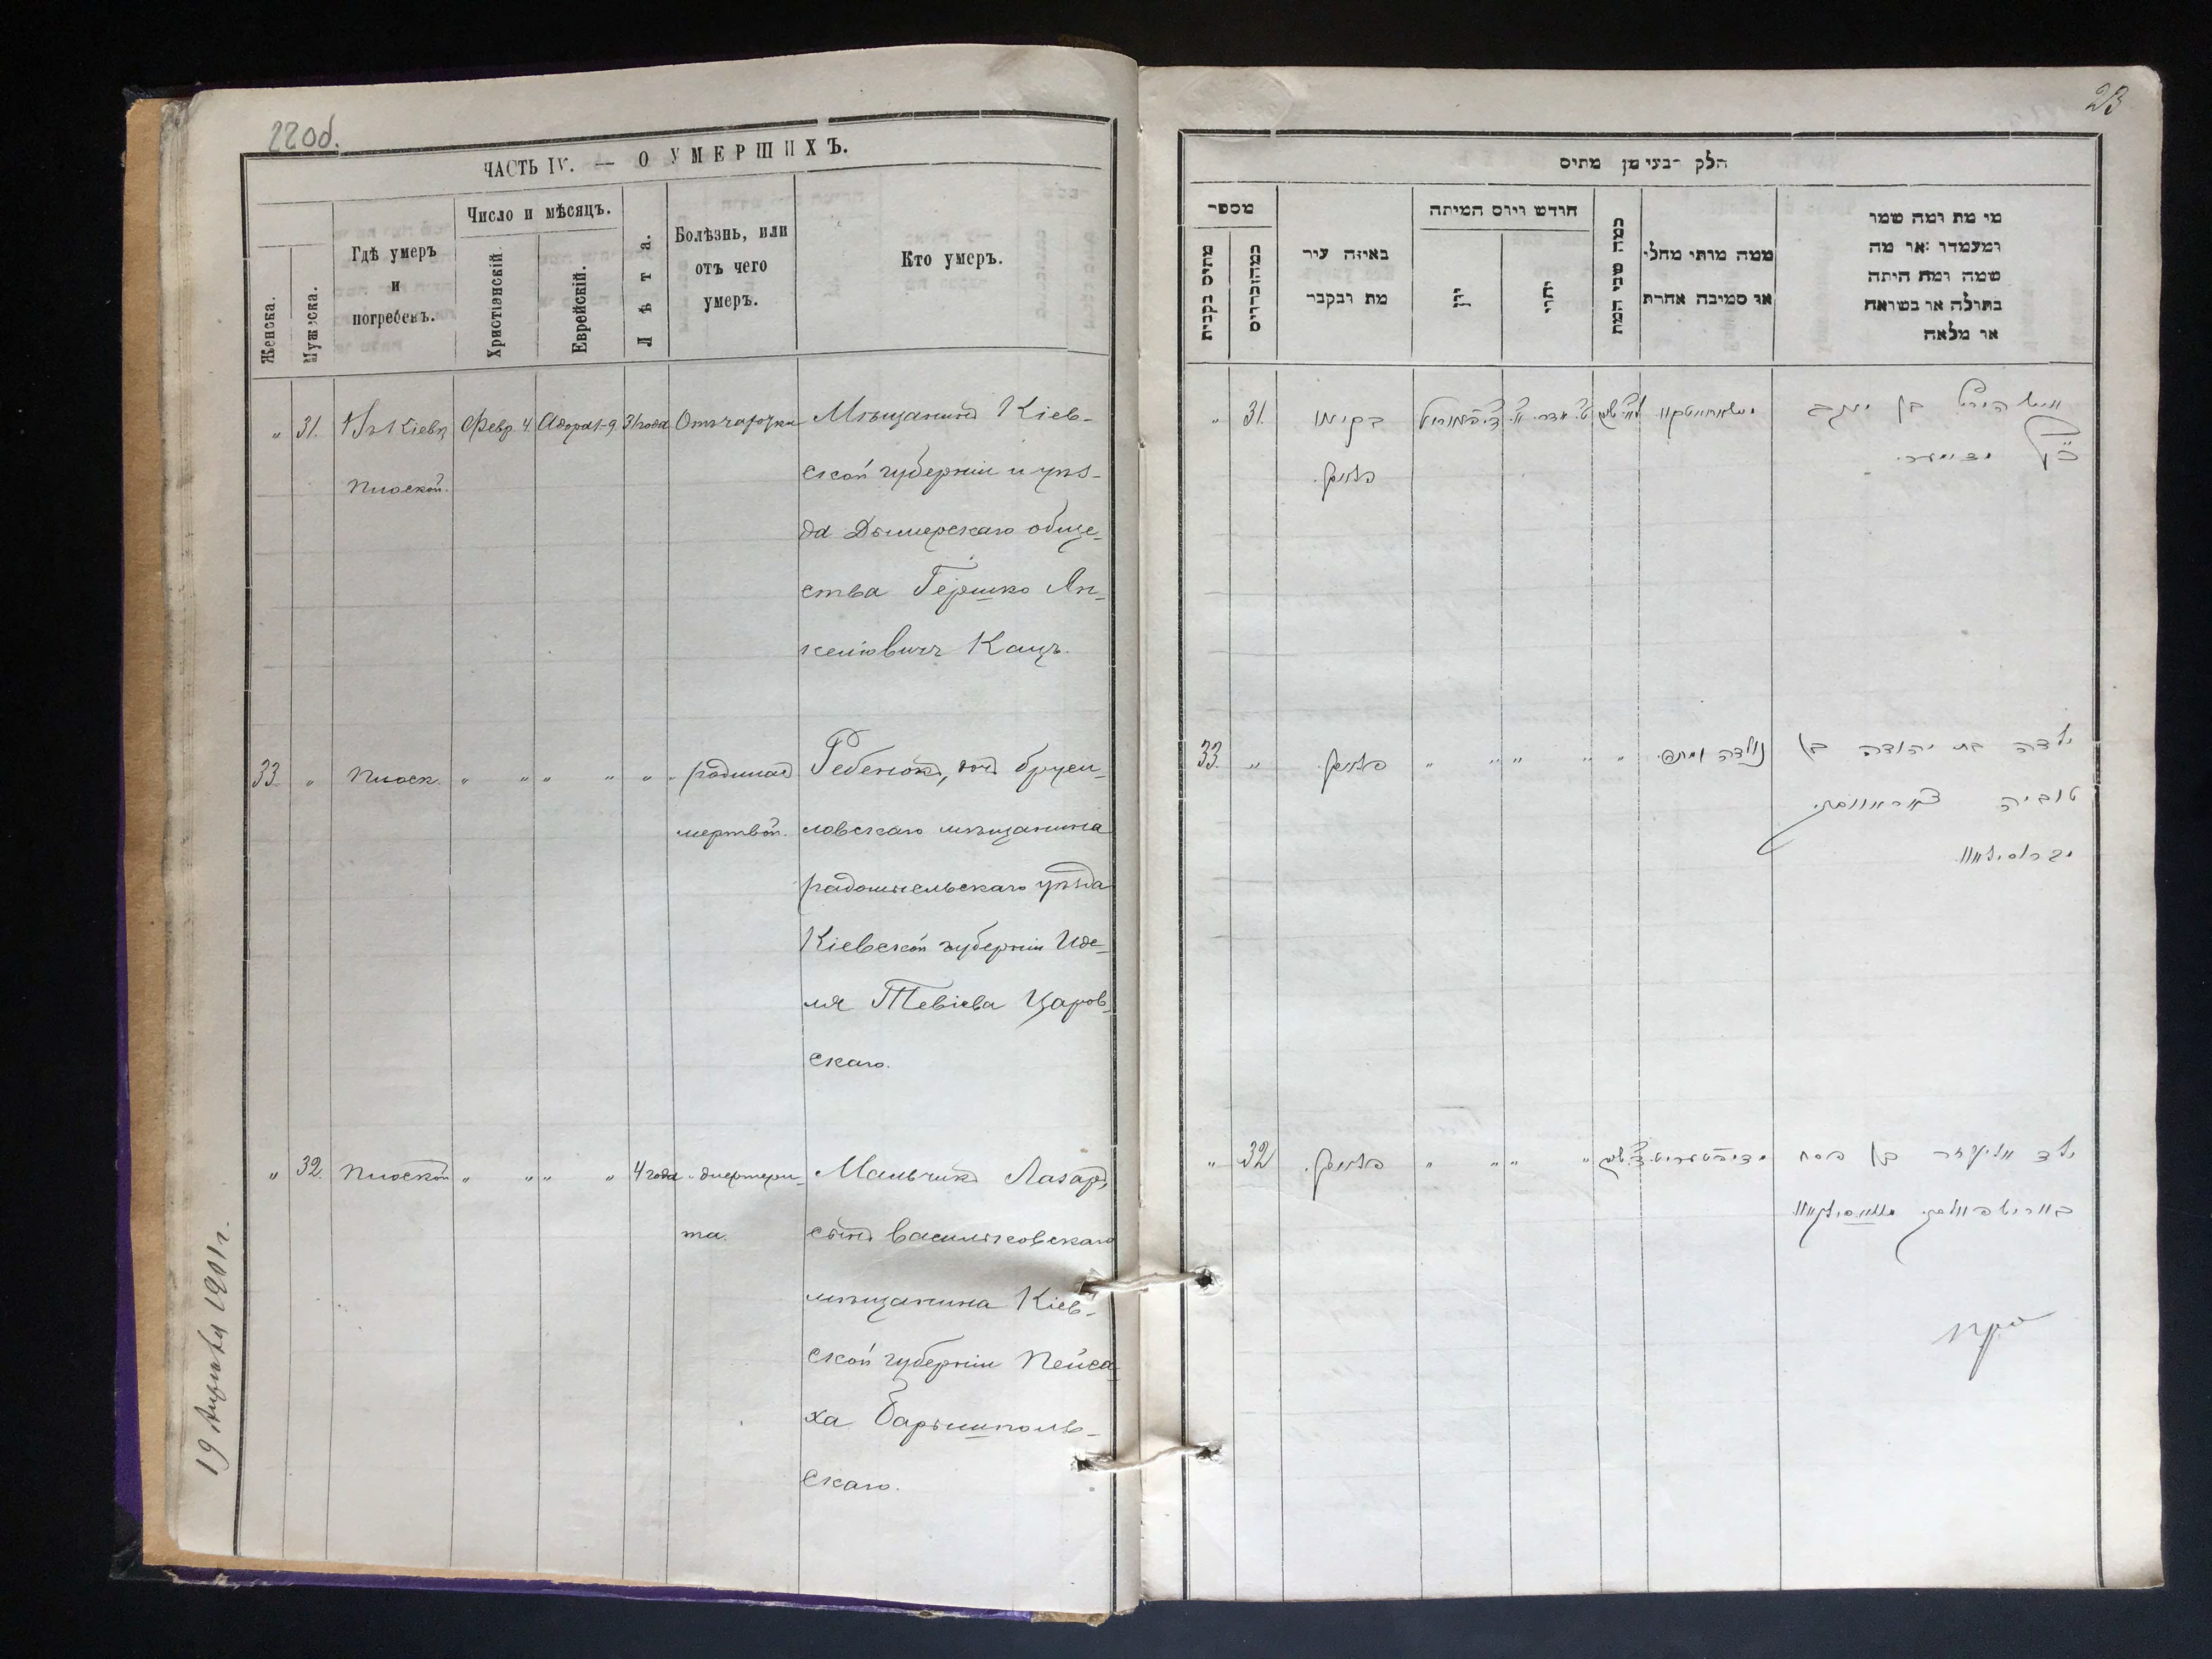 22об.
ЧАСТЬ IV. — О УМЕРШИХЪ.
Женска.
Мужеска.
Гдѣ умеръ
и
погребенъ.
Число и мѣсяцъ.
Христіанскій.
Еврейскій.
Лѣта.
Болѣзнь, или
отъ чего
умеръ.
Кто умеръ.
" 31. Въ Кіевѣ Февр. 4. Адора 1-9 31 года Отъ чахотки Мѣщанинъ Кіев-
Плоской. ской губерніи и уѣз-
да Дымерскаго обще-
ства Гершко Ян-
келіовичъ Кацъ.
33. " Плоск. " " " " " родилась Ребенокъ, дочь брусил-
мертвой. ловскаго мѣщанина
радомысльскаго уѣзда
Кіевской губерніи Иде-
ля Тевіева Царов-
скаго.
" 32. Плоской " " " " 4 года дифтери- Мальчикъ Лазарь,
та. сынъ васильковскаго
мѣщанина Кіев-
ской губерніи Пейса-
ха Барышполь-
скаго.
19 Августа 1901 г.
23
חלק רבעי מן מתים
מספר
מתים נקבות
מתים זכרים
באיזה עיר
מת ונקבר
חודש ויום המיתה
יוני
יהודי
כמה שני המת
ממה מותו מחלי
או מסיבה אחרת
מי מת ומה שמו
ומעמדו או מה
שמה ומה היתה
בתולה או נשואה
או מלאה
" 31. בקיוב
פלוסק. איש הירש בן יעקב
כ"ץ
33. " פלוסק. " " " " " נולדה מתה. ילדה בת יהודה בן
טוביה
" 32 פלוסק. " " " " ילד אליעזר בן פסח